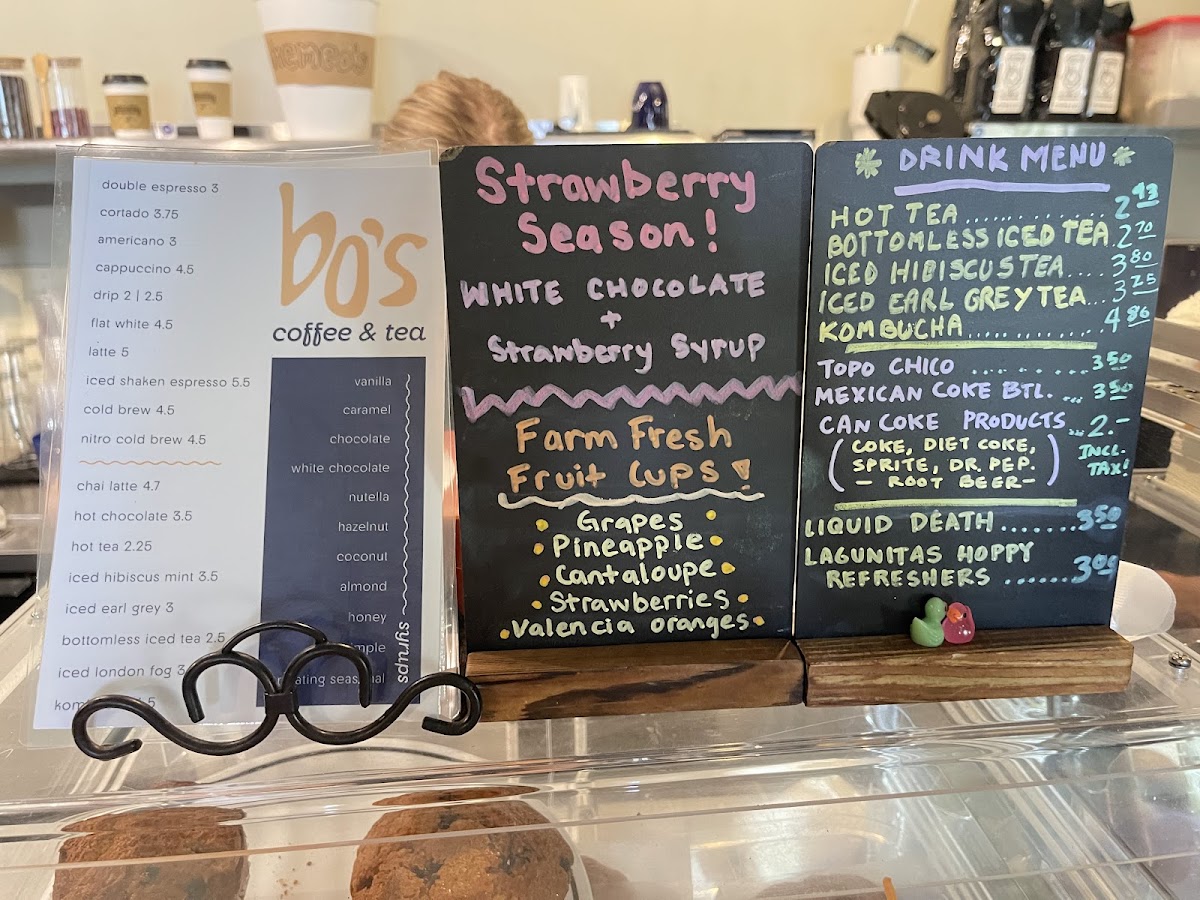 double espresso 3
cortado 3.75
americano 3
cappuccino 4.5
drip 2 | 2.5
flat white 4.5
latte 5
iced shaken espresso 5.5
cold brew 4.5
nitro cold brew 4.5
chai latte 4.7
hot chocolate 3.5
hot tea 2.25
iced hibiscus mint 3.5
iced earl grey 3
bottomless iced tea 2.5
iced london fog
bo's
coffee & tea
vanilla
caramel
chocolate
white chocolate
nutella
hazelnut
coconut
almond
honey
syrups
Strawberry
Season!
WHITE CHOCOLATE
+
Strawberry Syrup
Farm Fresh
Fruit Cups!
Grapes
Pineapple
Cantaloupe
Strawberries
Valencia oranges
DRINK MENU
HOT TEA............ 2.93
BOTTOMLESS ICED TEA. 2.70
ICED HIBISCUS TEA.... 3.80
ICED EARL GREY TEA... 3.25
KOMBUCHA............ 4.86
TOPO CHICO ......... 3.50
MEXICAN COKE BTL. ... 3.50
CAN COKE PRODUCTS... 2.-
(COKE, DIET COKE,
SPRITE, DR. PEP.
- ROOT BEER-)
INCL.
TAX!
LIQUID DEATH....... 3.50
LAGUNITAS HOPPY
REFRESHERS ......